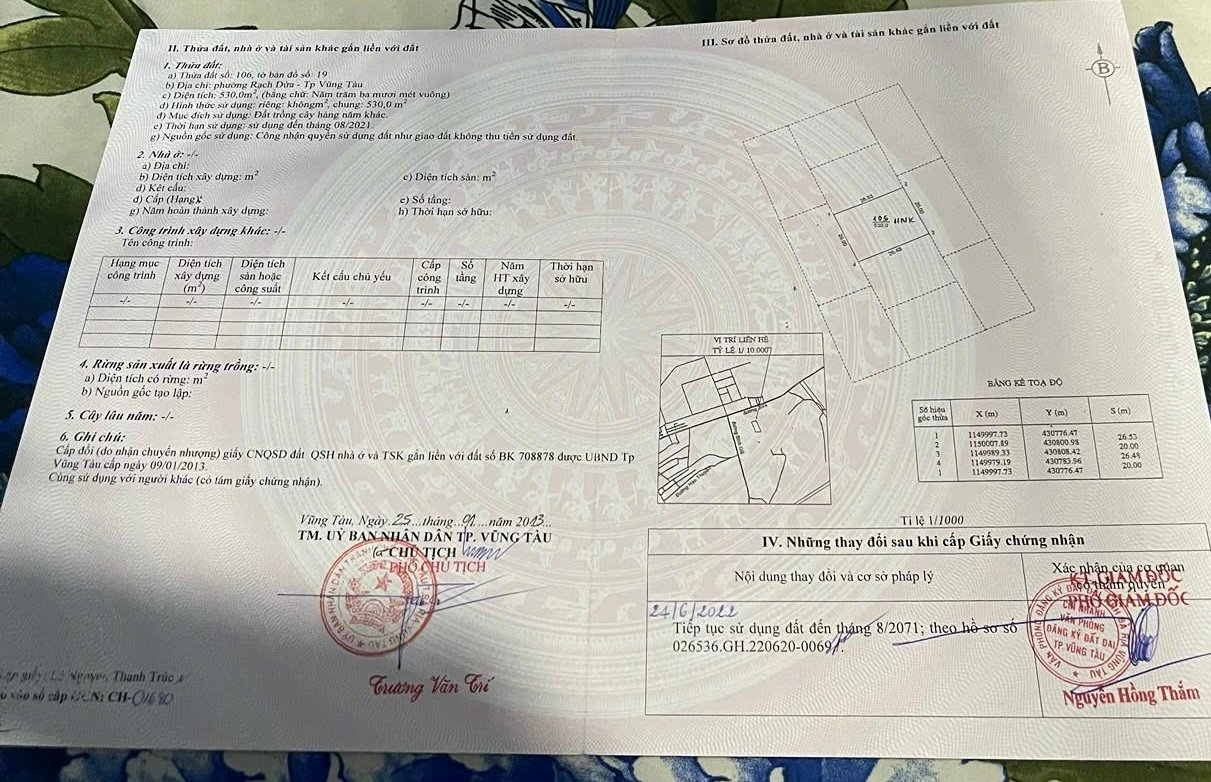 II. Thửa đất, nhà ở và tài sản khác gắn liền với đất
1. Thửa đất:
a) Thửa đất số: 106, tờ bản đồ số: 19
b) Địa chỉ: phường Rạch Dừa - Tp Vũng Tàu
c) Diện tích: 530,0m², (bằng chữ: Năm trăm ba mươi mét vuông)
d) Hình thức sử dụng: riêng: khôngm², chung: 530,0 m²
đ) Mục đích sử dụng: Đất trồng cây hàng năm khác.
e) Thời hạn sử dụng: sử dụng đến tháng 08/2021.
g) Nguồn gốc sử dụng: Công nhận quyền sử dụng đất như giao đất không thu tiền sử dụng đất.
2. Nhà ở: -/-
a) Địa chỉ:
b) Diện tích xây dựng: m²
c) Diện tích sàn: m²
d) Kết cấu:
đ) Cấp (Hạng):
e) Số tầng:
g) Năm hoàn thành xây dựng:
h) Thời hạn sở hữu:
3. Công trình xây dựng khác: -/-
Tên công trình:
Hạng mục công trình
Diện tích xây dựng (m²)
Diện tích sàn hoặc công suất
Kết cấu chủ yếu
Cấp công trình
Số tầng
Năm HT xây dựng
Thời hạn sở hữu
-/- -/- -/- -/- -/- -/- -/- -/-
4. Rừng sản xuất là rừng trồng: -/-
a) Diện tích có rừng: m²
b) Nguồn gốc tạo lập:
5. Cây lâu năm: -/-
6. Ghi chú:
Cấp đổi (do nhận chuyển nhượng) giấy CNQSD đất QSH nhà ở và TSK gắn liền với đất số BK 708878 được UBND Tp
Vũng Tàu cấp ngày 09/01/2013.
Cùng sử dụng với người khác (có tám giấy chứng nhận).
Vũng Tàu, Ngày 25 tháng 01 năm 2013
TM. UỶ BAN NHÂN DÂN TP. VŨNG TÀU
CHỦ TỊCH
PHÓ CHỦ TỊCH
Trương Văn Trí
giấy: Lê Nguyễn Thanh Trúc
vào sổ cấp GCN: CH-01680
III. Sơ đồ thửa đất, nhà ở và tài sản khác gắn liền với đất
B
1
26.53
2
20.00
106
530.0
HNK
20.00
3
26.48
4
VỊ TRÍ LIÊN HỆ
TỶ LỆ 1/ 10.000
BẢNG KÊ TOẠ ĐỘ
Số hiệu góc thửa X (m) Y (m) S (m)
1 1149997.73 430776.47
26.53
2 1150007.89 430800.98
20.00
3 1149989.33 430808.42
26.48
4 1149979.19 430783.96
20.00
1 1149997.73 430776.47
Tỉ lệ 1/1000
IV. Những thay đổi sau khi cấp Giấy chứng nhận
Nội dung thay đổi và cơ sở pháp lý
Xác nhận của cơ quan
có thẩm quyền
KT. GIÁM ĐỐC
PHÓ GIÁM ĐỐC
24/6/2022
Tiếp tục sử dụng đất đến tháng 8/2071; theo hồ sơ số
026536.GH.220620-0069
CHI NHÁNH
VĂN PHÒNG
ĐĂNG KÝ ĐẤT ĐAI
TP. VŨNG TÀU
Nguyễn Hồng Thắm